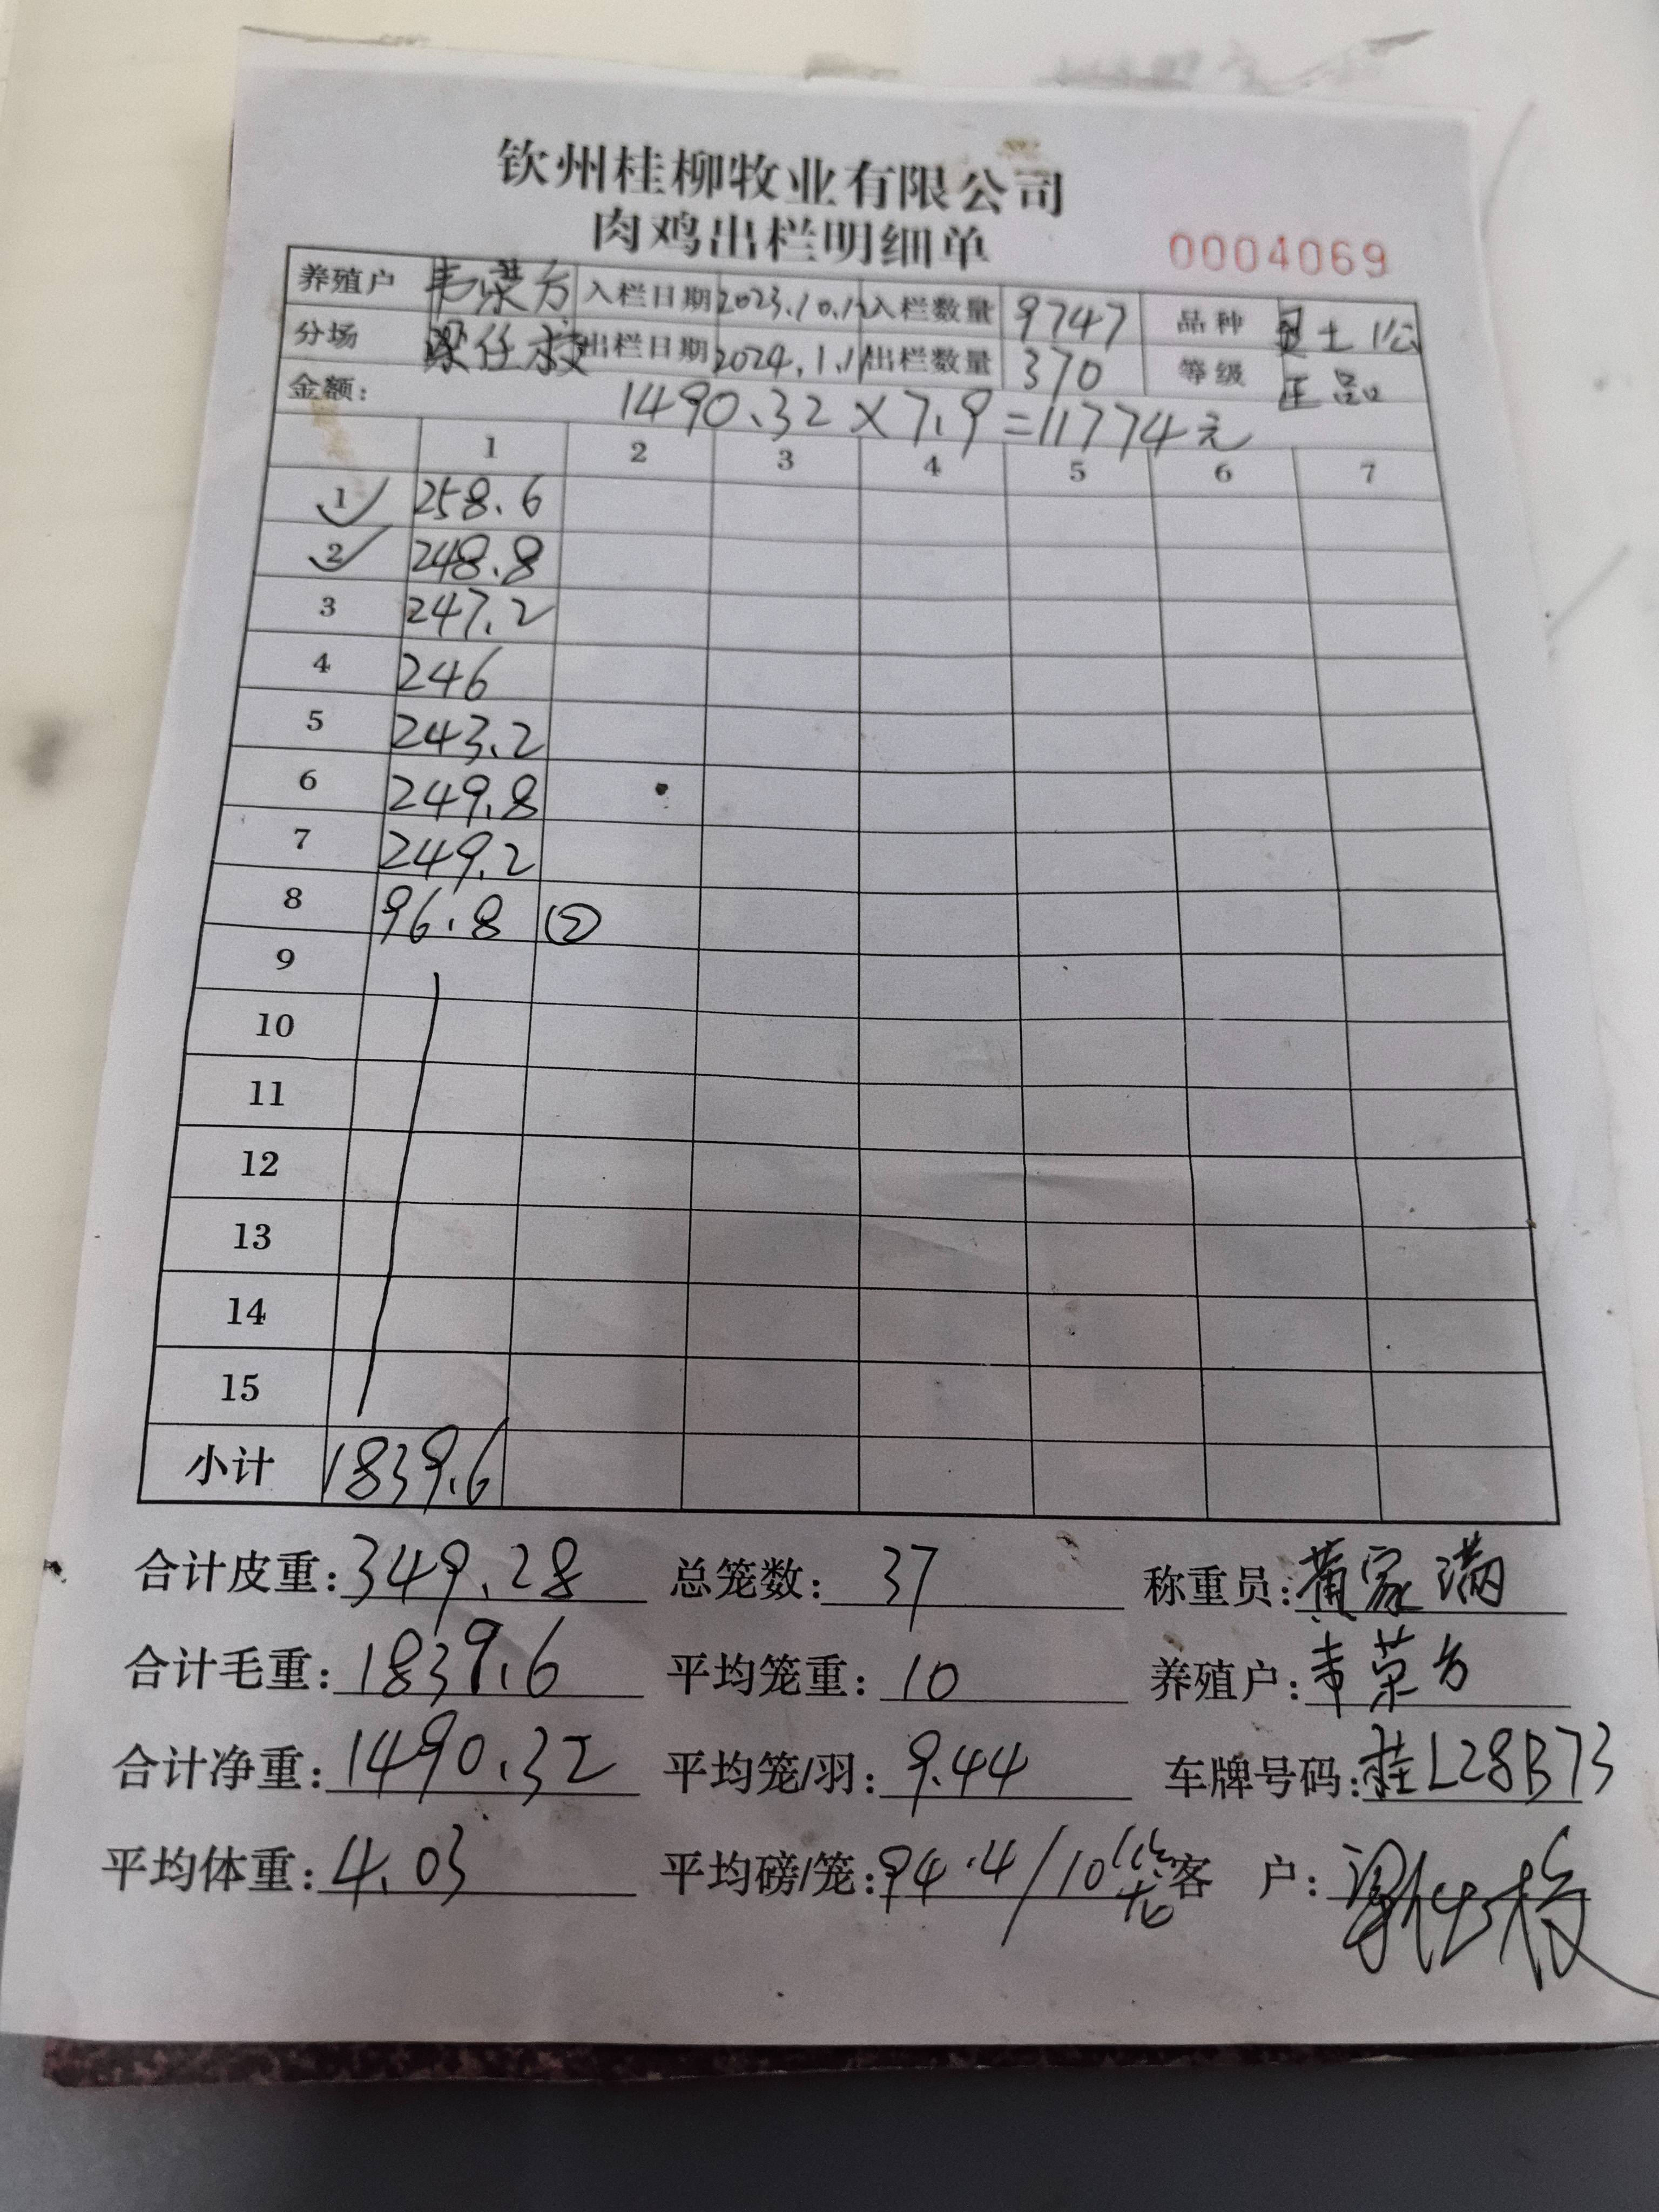 钦州桂柳牧业有限公司
肉鸡出栏明细单
0004069
养殖户 韦荣方 入栏日期 2023.10.1 入栏数量 9747 品种 土1公
分场 出栏日期 2024.1.11 出栏数量 370 等级 正品
金额: 1490.32×7.9=11774元
1 2 3 4 5 6 7
1 258.6
2 248.8
3 247.2
4 246
5 243.2
6 249.8
7 249.2
8 96.8 ②
9
10
11
12
13
14
15
小计 1839.6
合计皮重: 349.28 总笼数: 37 称重员: 黄家满
合计毛重: 1839.6 平均笼重: 10 养殖户: 韦荣方
合计净重: 1490.32 平均笼/羽: 9.44 车牌号码: 桂L28B73
平均体重: 4.03 平均磅/笼: 94.4/10笼 客 户: